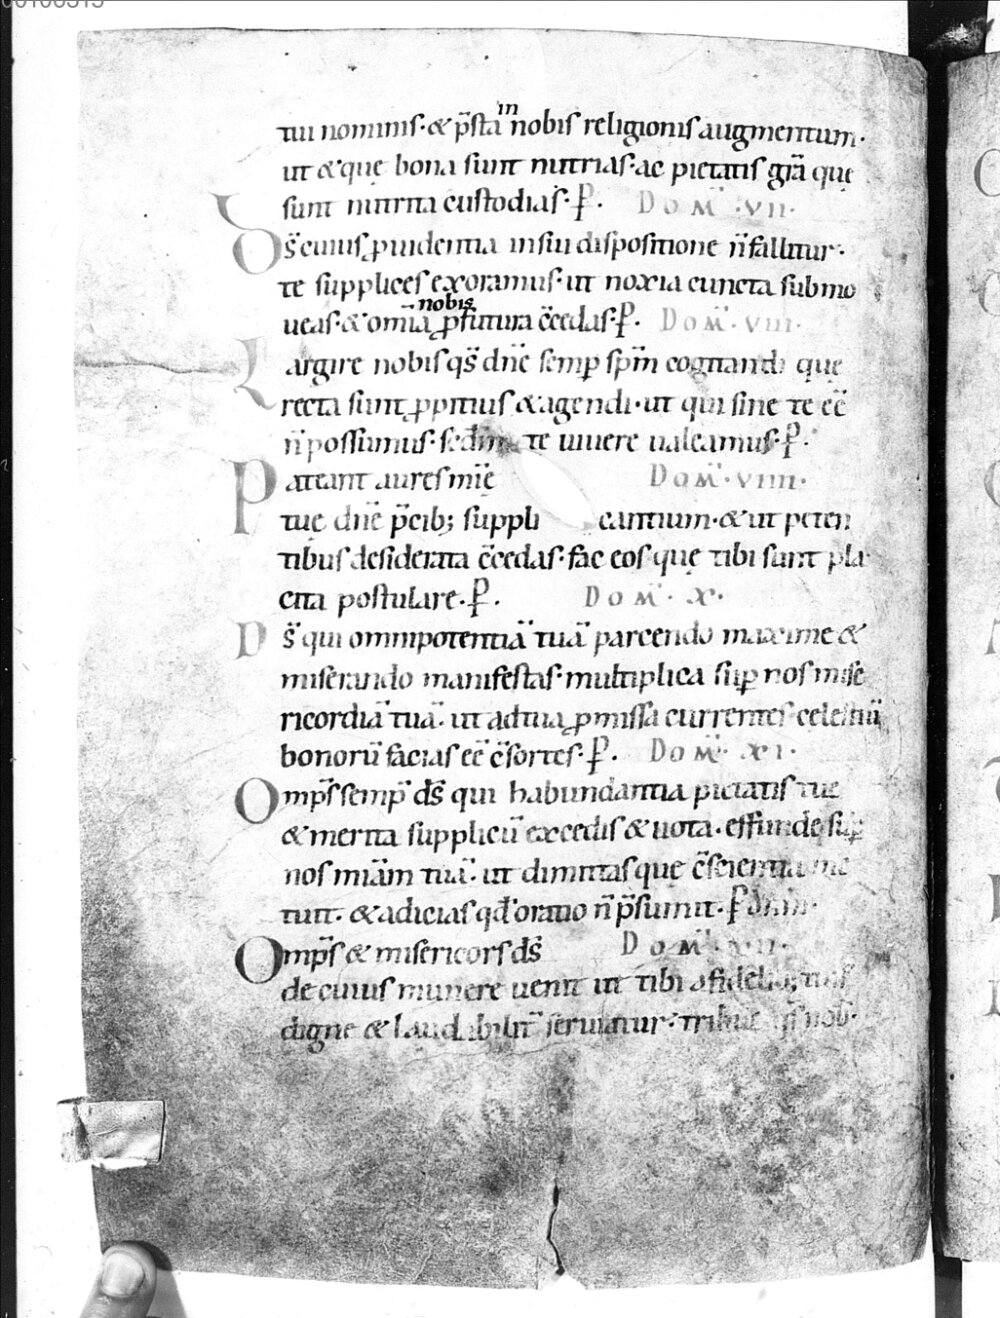 tui nominis·& p̄sta in nobis religionis augmentum·
ut & quę bona sunt nutrias·ac pietatis gr̄a quę
sunt nutrita custodias·P̄. Dom̄·VII·
Ds̄ cuius ꝓuidentia insui dispositione n̄ fallitur·
te supplices exoramus·ut noxia cuncta submo
ueas·& om̄ia nobis ꝓfutura c̄cedas·P̄. Dom̄·VIII·
Largire nobis qs̄ dn̄e semp̄ sp̄m cogitandi quę
recta sunt ꝓpitius & agendi·ut qui sine te ee̅
n̄ possumus·sed̄m te uiuere ualeamus·P̄.
Pateant aures mīe Dom̄·VIIII·
tuę dn̄e p̄cib; suppli cantium·& ut peten
tibus desiderata c̄cedas·fac eos quę tibi sunt pla
cita postulare·P̄. Dom̄·X·
Ds̄ qui omnipotentiā tuā parcendo maxime &
miserando manifestas·multiplica sup̄ nos mise
ricordiā tuā·ut ad tua ꝓmissa currentes celestiū
bonorū facias ee̅ c̄sortes·P̄. Dom̄·XI·
Omp̄s semp̄ ds̄ qui habundantia pietatis tuę
& merita supplicū excedis & uota·effunde sup̄
nos miām tuā·ut dimittas quę c̄scientia me
tuit·& adicias qd̄ oratio n̄ p̄sumit·P̄
Omp̄s & misericors ds̄ Dom̄·XII·
de cuius munere uenit ut tibi a fidelib; tuis
digne & laudabilit̄ seruiatur·tribue qs̄ nob̄·